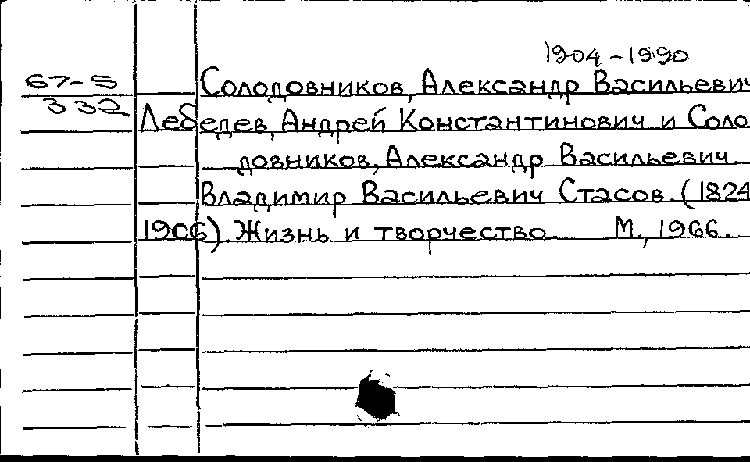 1904-1990
67-5 Солодовников, Александр Васильевич
332 Лебедев, Андрей Константинович и Соло
довников, Александр Васильевич
Владимир Васильевич Стасов. (1824
1906). Жизнь и творчество. М., 1966.